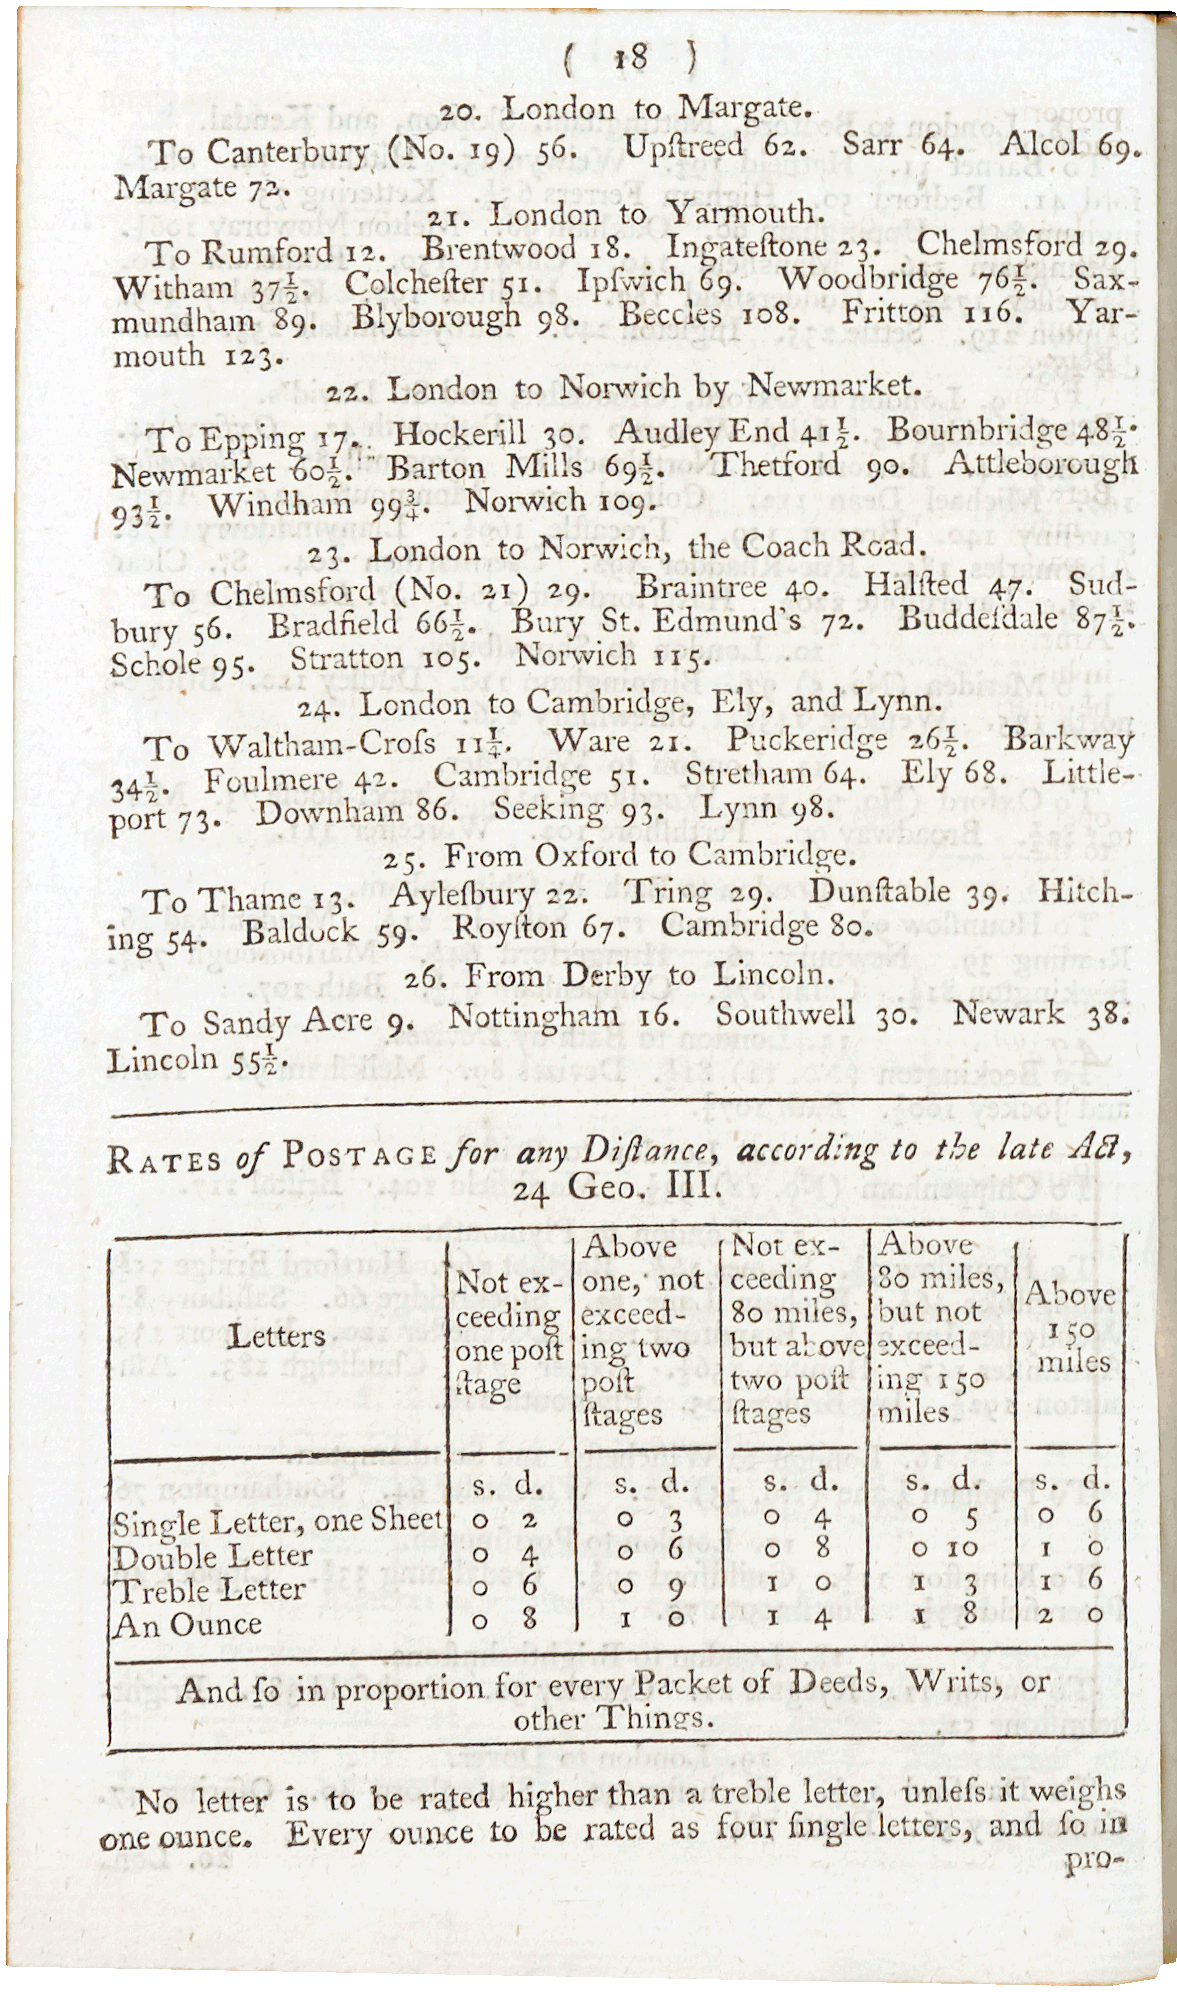 ( 18 )
20. London to Margate.
To Canterbury (No. 19) 56. Upſtreed 62. Sarr 64. Alcol 69.
Margate 72.
21. London to Yarmouth.
To Rumford 12. Brentwood 18. Ingateſtone 23. Chelmsford 29.
Witham 37½. Colcheſter 51. Ipſwich 69. Woodbridge 76½. Sax-
mundham 89. Blyborough 98. Beccles 108. Fritton 116. Yar-
mouth 123.
22. London to Norwich by Newmarket.
To Epping 17. Hockerill 30. Audley End 41½. Bournbridge 48½.
Newmarket 60½. Barton Mills 69½. Thetford 90. Attleborough
93½. Windham 99¾. Norwich 109.
23. London to Norwich, the Coach Road.
To Chelmsford (No. 21) 29. Braintree 40. Halſted 47. Sud-
bury 56. Bradfield 66½. Bury St. Edmund's 72. Buddeſdale 87½.
Schole 95. Stratton 105. Norwich 115.
24. London to Cambridge, Ely, and Lynn.
To Waltham-Croſs 11¼. Ware 21. Puckeridge 26½. Barkway
34½. Foulmere 42. Cambridge 51. Stretham 64. Ely 68. Little-
port 73. Downham 86. Seeking 93. Lynn 98.
25. From Oxford to Cambridge.
To Thame 13. Ayleſbury 22. Tring 29. Dunſtable 39. Hitch-
ing 54. Baldock 59. Royſton 67. Cambridge 80.
26. From Derby to Lincoln.
To Sandy Acre 9. Nottingham 16. Southwell 30. Newark 38.
Lincoln 55½.
RATES of POSTAGE for any Diſtance, according to the late Act,
24 Geo. III.
Letters
Not ex-
ceeding
one poſt
ſtage
Above
one, not
exceed-
ing two
poſt
ſtages
Not ex-
ceeding
80 miles,
but above
two poſt
ſtages
Above
80 miles,
but not
exceed-
ing 150
miles
Above
150
miles
s. d. s. d. s. d. s. d. s. d.
Single Letter, one Sheet 0 2 0 3 0 4 0 5 0 6
Double Letter 0 4 0 6 0 8 0 10 1 0
Treble Letter 0 6 0 9 1 0 1 3 1 6
An Ounce 0 8 1 0 1 4 1 8 2 0
And ſo in proportion for every Packet of Deeds, Writs, or
other Things.
No letter is to be rated higher than a treble letter, unleſs it weighs
one ounce. Every ounce to be rated as four ſingle letters, and ſo in
pro-